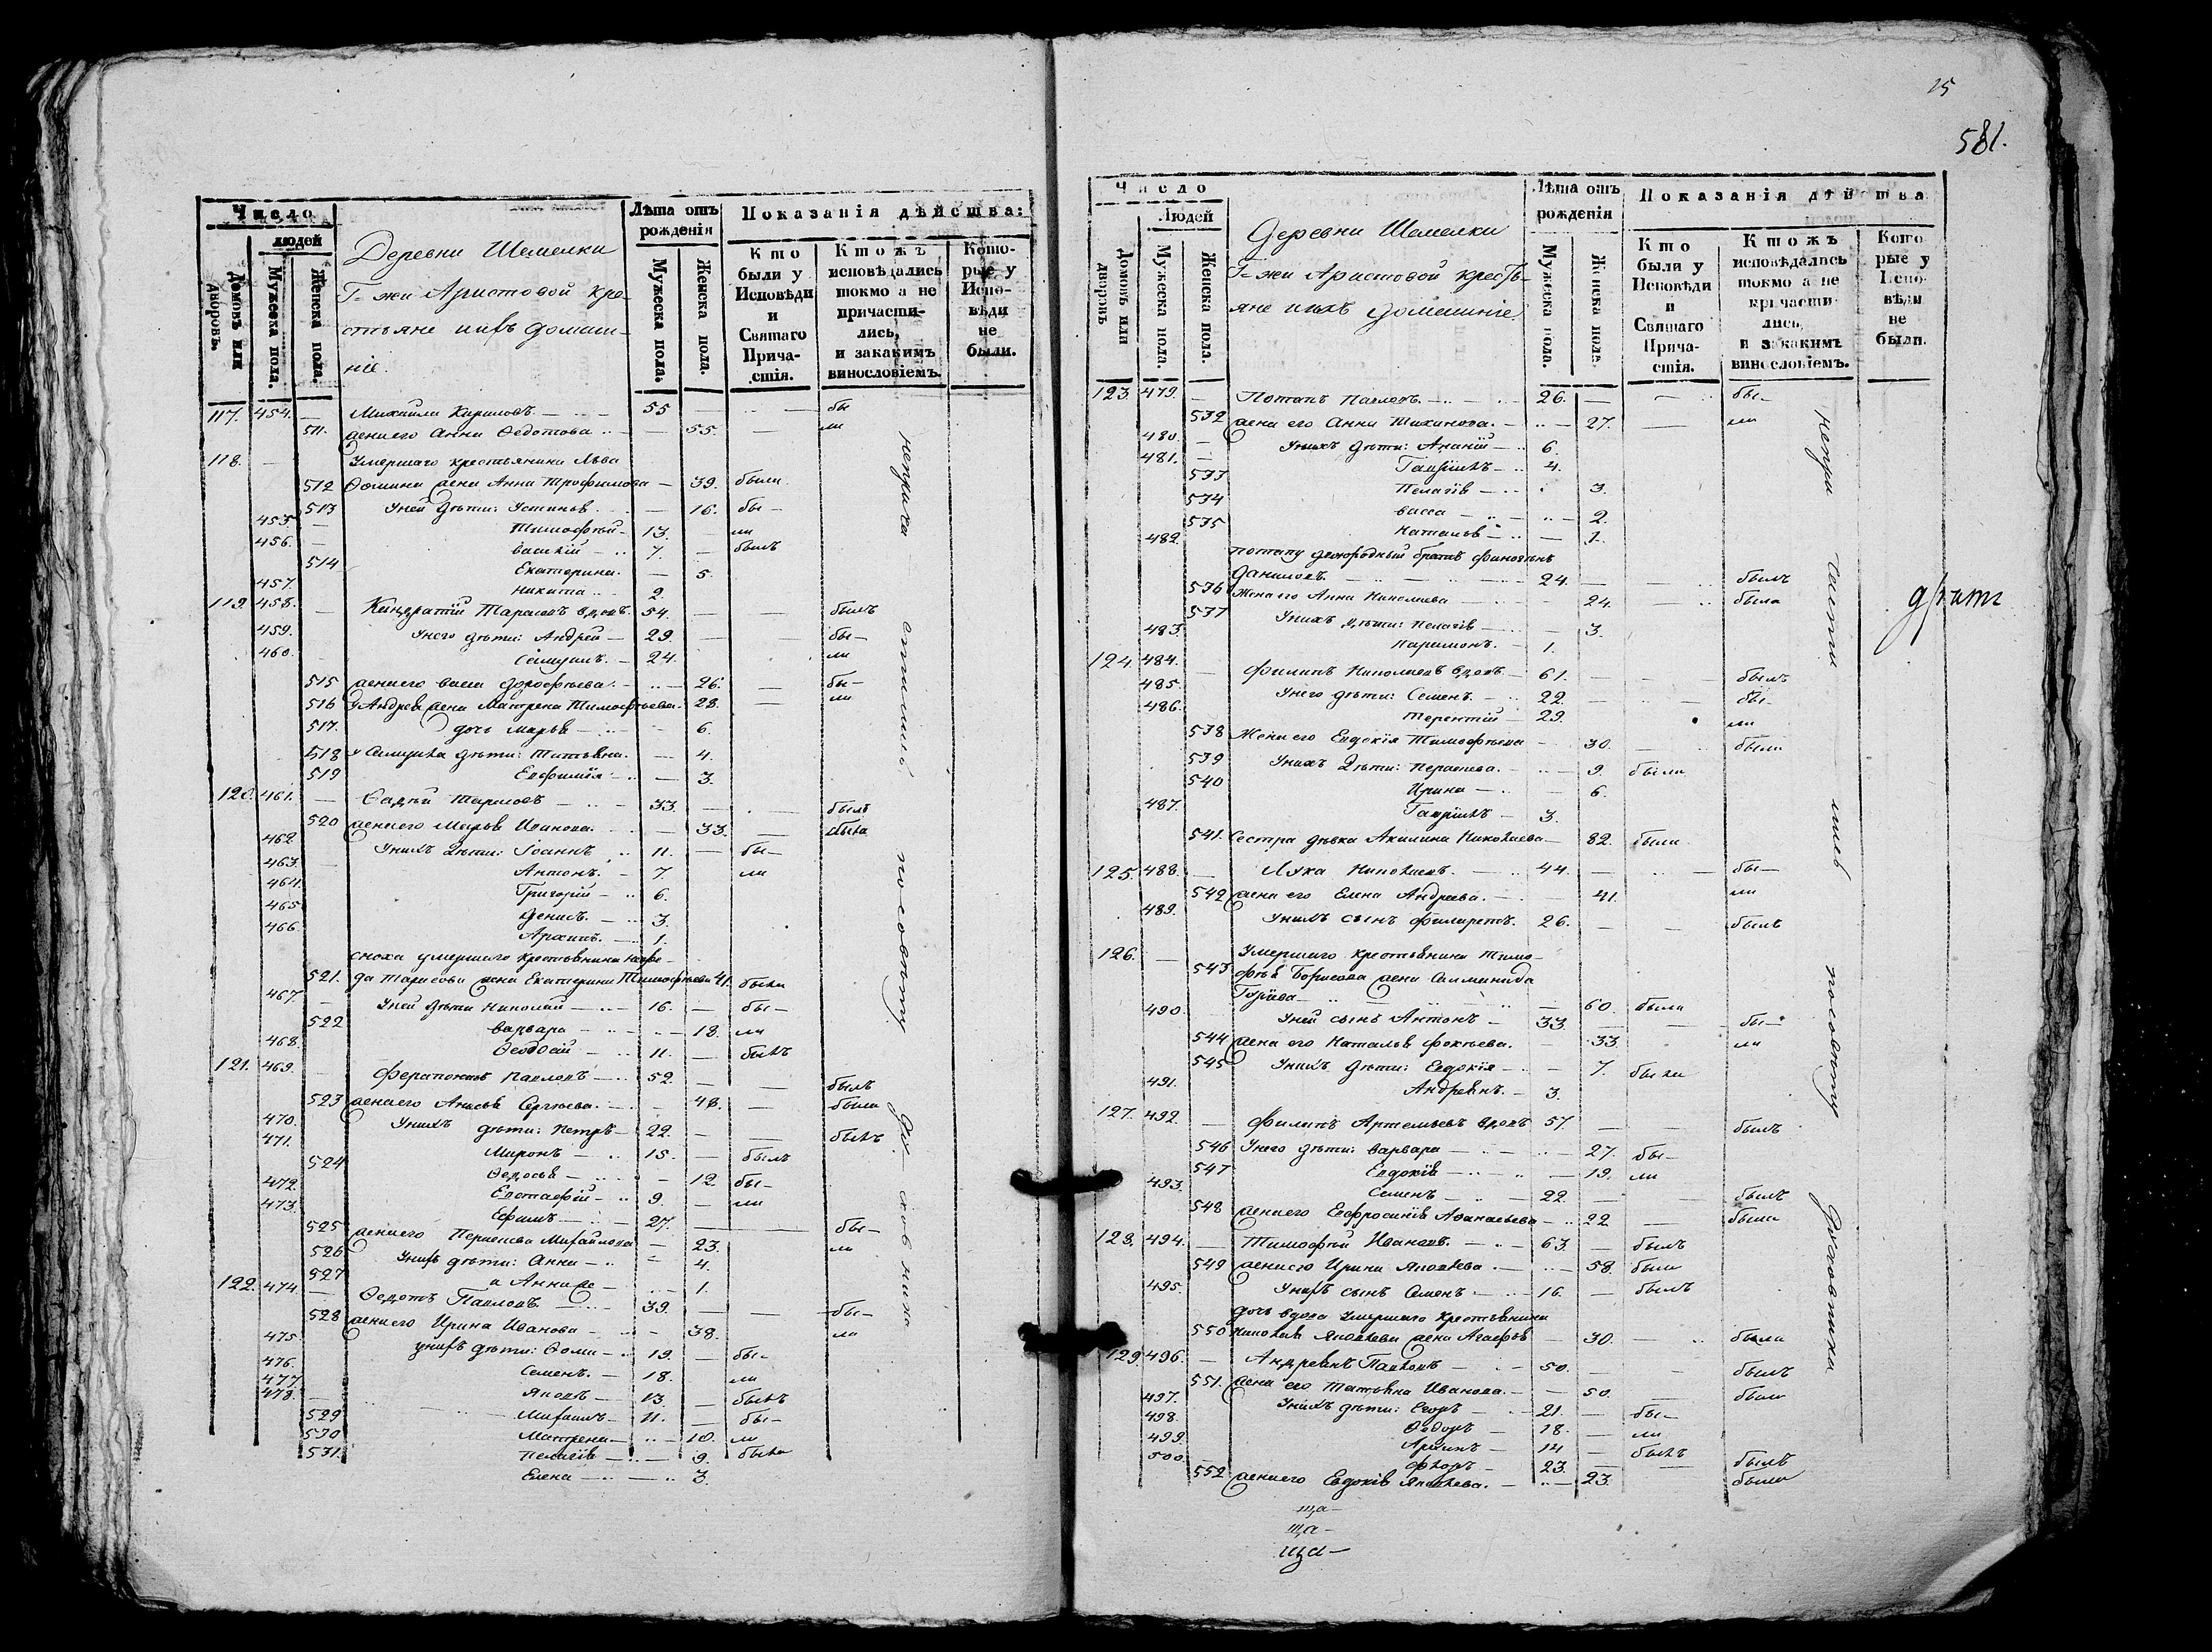 15
581.
Число
людей
Домовъ или дворовъ.
Мужеска пола.
Женска пола.
Деревни Шемелки
Г-жи Аристовой кре-
стьяне ихъ домаш-
ніе.
Лѣта отъ рожденія
Мужеска пола.
Женска пола.
Показанія дѣйства:
Кто были у Исповѣди и Святаго Причастія.
Ктожъ исповѣдались токмо а не причастились, и закакимъ винословіемъ.
Которые у Исповѣди не были.
117. 454. — Михаила Кириловъ 55 — бы
511. жена его Анна Ѳедотова — 55. — ли
118. — Умершаго крестьянина Льва
512 Ѳомина жена Анна Трофимова — 39. были
513 У ней дѣти: Устинья — 16. бы—
455. — Тимофѣй 13. — ли
456. — Василій 7. — былъ
514 Екатерина — 5.
457. Никита 2.
119. 458. — Кондратій Тарасовъ вдовъ. 54. — былъ
459. У него дѣти: Андрей 29. — бы—
460. Самуилъ 24. ли
515 жена его Васса Дорофѣева — 26. — бы—
516 у Андрея жена Матрена Тимофѣева. 28. — ли
517. дочь Марья — 6.
518 у Самуила дѣти: Татьяна. — 4.
519 Евфимія — 3.
120. 461. — Ѳадѣй Тарасовъ 33. — былъ
520 жена его Марья Иванова. — 33. — была
462 У нихъ дѣти: Іоаннъ 11. — бы—
463. — Антонъ. 7. ли
464. Григорій 6.
465 Денисъ. 3.
466. Архипъ. 1.
сноха умершаго крестьянина
521. Тарасова жена Екатерина Тимофѣева 41. была
467. — У ней дѣти Николай 16. — бы—
522 Варвара — 18. ли
468. Ѳеодосій 11. — былъ
121. 469. — Ферапонтъ Павловъ 52. — былъ
523 жена его Анисья Сергѣева. — 48. — была
470. У нихъ дѣти: Петръ 22. — былъ
471. Миронъ 15. — былъ
524 Ѳедосья — 12 бы—
472. Евстафій 9 — ли
473. Ефимъ 27. — бы—
525 жена его Михайлова — 23. ли
526 У нихъ дѣти: Анна — 4.
527 и Анна же — 1.
122. 474. — Ѳедотъ Павловъ 39. — бы—
528 жена его Ирина Иванова — 38. ли
475. у нихъ дѣти: Ѳома 19. — бы—
476. Семенъ. 18. ли
477 Яковъ 13. — былъ
478. — Михаилъ 11. — бы—
529 Матрена — 10. ли
530 Пелагія — 9. была
531. Елена — 3.
Число
Людей
Домовъ или дворовъ
Мужеска пола.
Женска пола.
Деревни Шемелки
Г-жи Аристовой кресть-
яне ихъ домашніе
Лѣта отъ рожденія
Мужеска пола.
Женска пола.
Показанія дѣйства
Кто были у Исповѣди и Святаго Причастія.
Ктожъ исповѣдались токмо а не причастились, и закакимъ винословіемъ.
Которые у Исповѣди не были.
123. 479. — Потапъ Павловъ. 26. — бы—
532 жена его Анна Тихонова. — 27. — ли
480. — У нихъ дѣти: Ананій 6.
481. — Гавріилъ 4.
533 Пелагія 3.
534 Васса — 2.
535 Наталья — 1.
482. Потапу двоюродный братъ
Даниловъ. 24. — былъ
536 Жена его Анна Николаева 24. — была
537 У нихъ дѣти: Пелагія — 3.
483. Парамонъ. 1.
124. 484. — Филипъ Николаевъ вдовъ 61. — былъ
485. У него дѣти: Семенъ. 22. — бы—
486. Терентій 29. ли
538 Жена его Евдокія Тимофѣева — 30. — была
539 У нихъ дѣти: — 9. была
540 Ирина — 6.
487. Гавріилъ 3.
541. Сестра дѣвка Акилина Николаева — 82. была
125. 488. — Лука Николаевъ. 44. — бы—
542 жена его Елена Андреева. — 41. ли
489. У нихъ сынъ Филаретъ. 26. — былъ
126. — Умершаго крестьянина Тимо-
543 фѣя Борисова жена
— 60. была
490. У ней сынъ Антонъ 33. — бы—
544 жена его Наталья Фокѣева. — 33. ли
545 У нихъ дѣти: Евдокія — 7. была
491. Андреянъ. 3.
127. 492. — Филипъ Артемьевъ вдовъ 57. — былъ
546 У него дѣти: Варвара — 27. бы—
547 Евдокія — 19. ли
493. Семенъ 22. — былъ
548 жена его Евфросинія Аѳанасьева — 22 — была
128. 494. — Тимофѣй Ивановъ. 63. — былъ
549 жена его Ирина Яковлева — 58. была
495. У нихъ сынъ Семенъ 16. — былъ
дочь вдова умершаго крестьянина
550 Николая Яковлева жена Агафья — 30. — была
129 496. — Андреянъ Павловъ 50. — былъ
551. жена его Татьяна Иванова. — 50. — была
497. У нихъ дѣти: Егоръ 21. — бы—
498. Ѳедоръ 18. — ли
499. 14 — былъ
500. Флоръ 23. — былъ
552 жена его Евдокія Яковлева. — 23. была
ща—
ща—
ща—
по совѣту
по совѣту
духовника